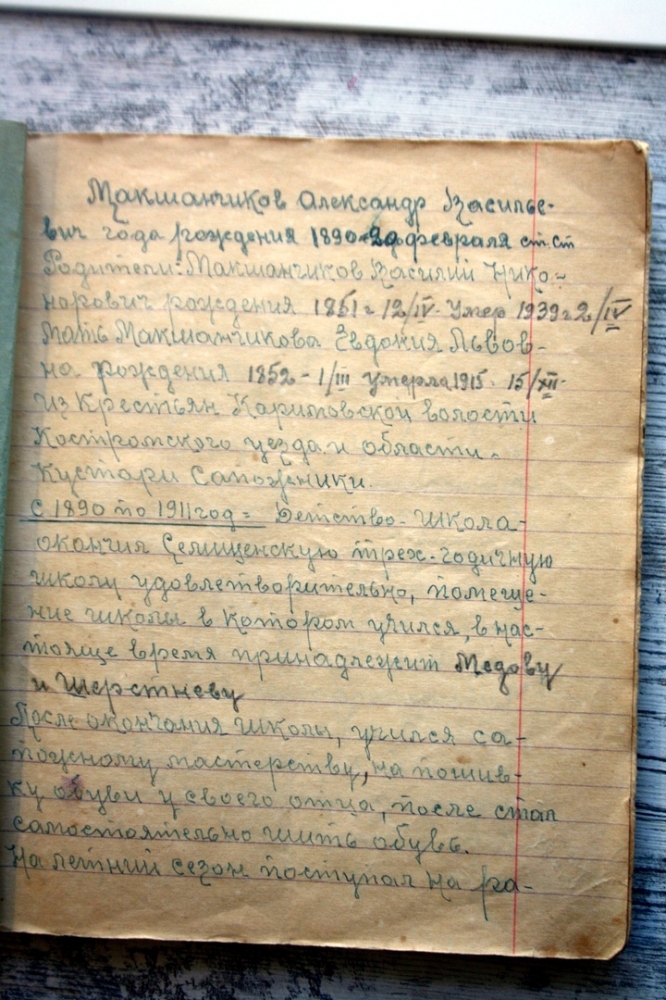 Макшанчиков Александр Василье-
вич года рождения 1890-2д февраля ст.ст
Родители: Макшанчиков Василий Нико-
норович рождения 1851 г 12/IV. Умер 1939 г 2/IV
Мать Макшанчикова Евдокия Львов-
на рождения 1852 - 1/III Умерла 1915. 15/XII.
из крестьян Каримовской волости
Костромского уезда и области.
Кустари сапожники.
с 1890 по 1911 год = Детство - школа -
окончил Селищенскую трех-годичную
школу удовлетворительно, помеще-
ние школы в котором учился, в нас-
тояще время принадлежит Медову
и Шерстневу
После окончания школы, учился са-
пожному мастерству, на пошив-
ку обуви у своего отца, после стал
самостоятельно шить обувь.
На летний сезон поступал на ра-